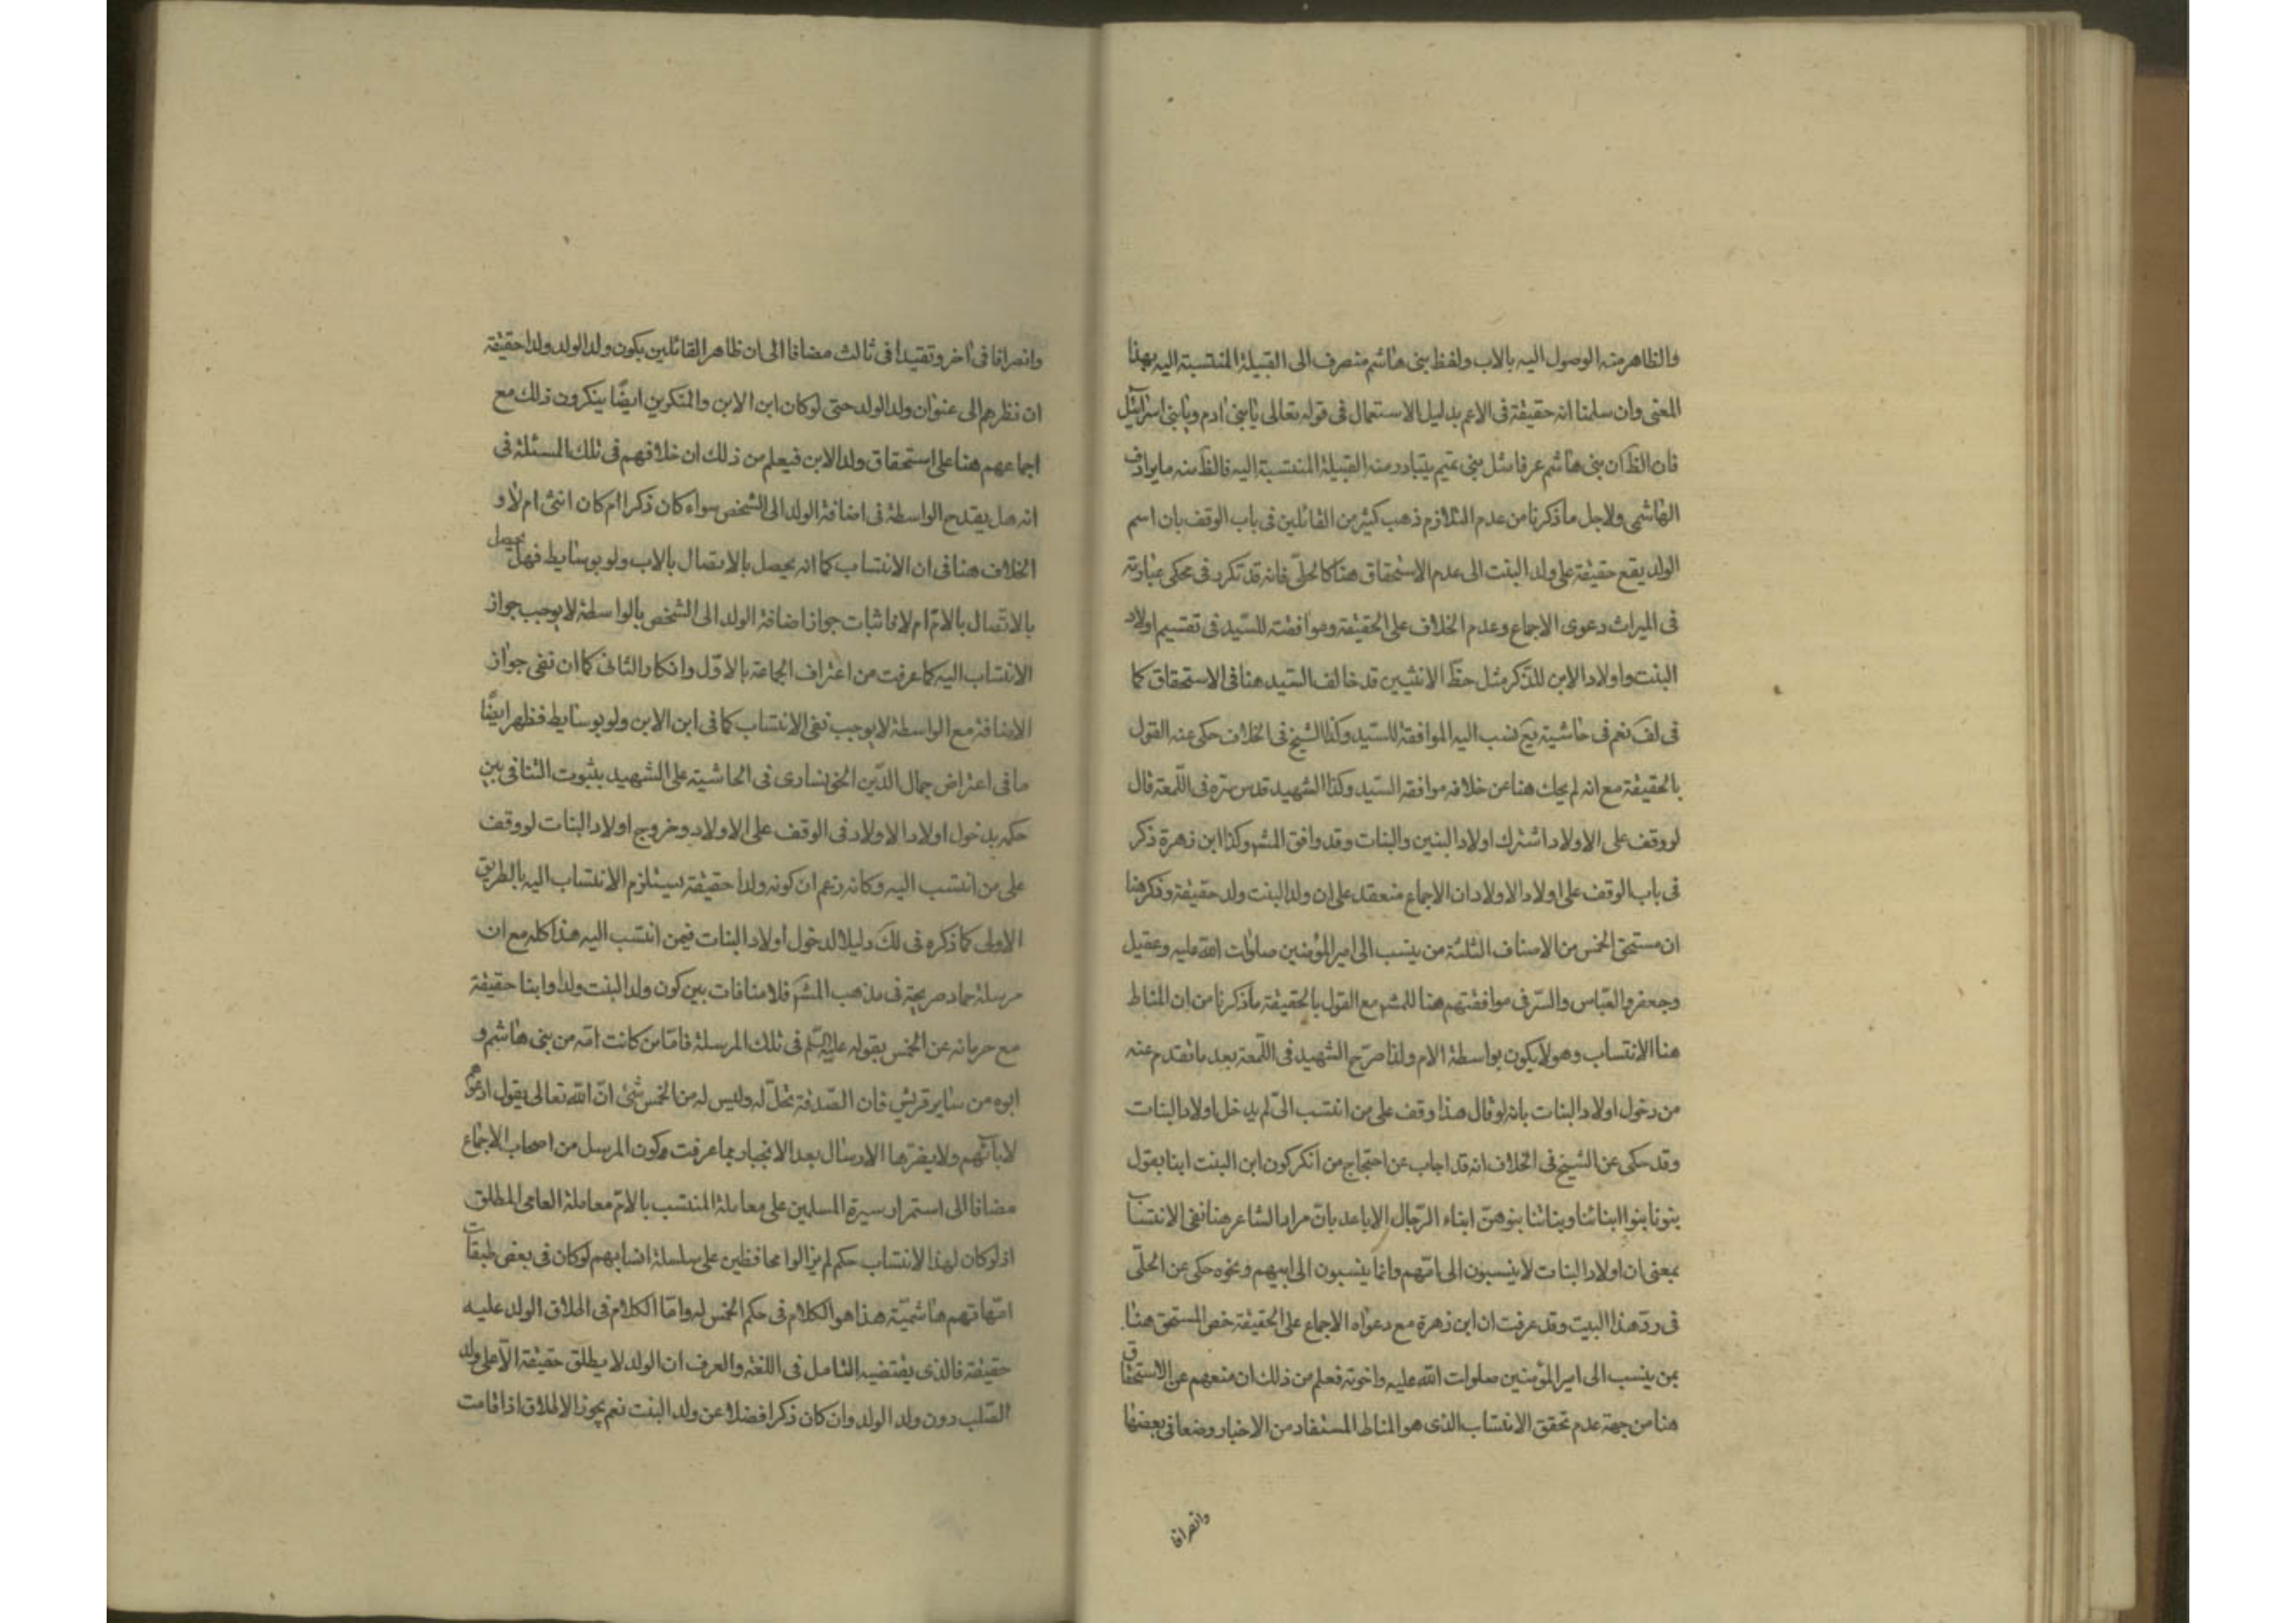 والظاهر منه الوصول اليه بالاب ولفظ بنى هاشم منصرف الى القبيلة المنتسبة اليه بهذا
المعنى وان سلمنا انه حقيقة فى الاعم بدليل الاستعمال فى قوله تعالى يا بنى ادم ويا بنى اسرائيل
فان الظ ان بنى هاشم عرفا مثل بنى تميم يتبادر منه القبيلة المنتسبة اليه فالظ منه ما يرادف
الهاشمى ولاجل ما ذكرنا من عدم التلازم ذهب كثير من القائلين فى باب الوقف بان اسم
الولد يقع حقيقة على ولد البنت الى عدم الاستحقاق هنا كالحلّى فانه قد تكرر فى محكى عبارته
فى الميراث دعوى الاجماع وعدم الخلاف على الحقيقة وموافقته للسّيد فى تقسيم اولاد
البنت واولاد الابن للذّكر مثل حظّ الانثيين قد خالف السّيد هنا فى الاستحقاق كما
فى لف نعم فى حاشية يع نسب اليه الموافقة للسّيد وكذا الشيخ فى الخلاف حكى عنه القول
بالحقيقة مع انه لم يحك هنا عن خلافه موافقه السّيد وكذا الشهيد قدس سره فى اللّمعة قال
لو وقف على الاولاد اشترك اولاد البنين والبنات وقد وافق المشه وكذا ابن زهرة ذكر
فى باب الوقف على اولاد الاولاد ان الاجماع منعقد على ان ولد البنت ولد حقيقة وذكر هنا
ان مستحق الخمس من الاصناف الثلثة من ينسب الى امير المؤمنين صلوات الله عليه وعقيل
وجعفر والعبّاس والسّر فى موافقتهم هنا للمشه مع القول بالحقيقة ما ذكرنا من ان المناط
هنا الانتساب وهو لا يكون بواسطة الام ولذا صرّح الشهيد فى اللّمعة بعد ما تقدم عنه
من دخول اولاد البنات بانه لو قال هذا وقف على من انتسب الىّ لم يدخل اولاد البنات
وقد حكى عن الشيخ فى الخلاف انه قد اجاب عن احتجاج من انكر كون ابن البنت ابنا بقول
بنونا بنوا ابنائنا وبناتنا بنوهنّ ابناء الرّجال الاباعد بانّ مراد الشاعر هنا نفى الانتساب
بمعنى ان اولاد البنات لا ينسبون الى امّهم وانما ينسبون الى ابيهم ونحوه حكى عن الحلّى
فى ردّ هذا البيت وقد عرفت ان ابن زهرة مع دعواه الاجماع على الحقيقة خص المستحق هنا
بمن ينسب الى امير المؤمنين صلوات الله عليه واخوته فعلم من ذلك ان منعهم عن الاستحقاق
هنا من جهة عدم تحقق الانتساب الذى هو المناط المستفاد من الاخبار وضعا فى بعضها
وانصرافا
وانصرافا فى اخر وتقييدا فى ثالث مضافا الى ان ظاهر القائلين بكون ولد الولد ولدا حقيقة
ان نظرهم الى عنوان ولد الولد حتى لو كان ابن الابن والمنكرين ايضًا ينكرون ذلك مع
اجماعهم هنا على استحقاق ولد الابن فيعلم من ذلك ان خلافهم فى تلك المسئلة فى
انه هل يقدح الواسطة فى اضافة الولد الى الشخص سواء كان ذكرا ام كان انثى ام لا و
الخلاف هنا فى ان الانتساب كما انه يحصل بالاتصال بالاب ولو بوسايط فهل يحصل
بالاتّصال بالامّ ام لا فاثبات جواز اضافة الولد الى الشخص بالواسطة لا يوجب جواز
الانتساب اليه كما عرفت من اعتراف الجماعة بالاوّل وانكار الثانى كما ان نفى جواز
الاضافة مع الواسطة لا يوجب نفى الانتساب كما فى ابن الابن ولو بوسايط فظهر ايضًا
ما فى اعتراض جمال الدّين الخونسارى فى الحاشية على الشهيد بثبوت التنافى بين
حكمه بدخول اولاد الاولاد فى الوقف على الاولاد وخروج اولاد البنات لو وقف
على من انتسب اليه وكانه زعم ان كونه ولدا حقيقة يستلزم الانتساب اليه بالطريق
الاولى كما ذكره فى لك دليلا لدخول اولاد البنات فيمن انتسب اليه هذا كله مع ان
مرسلة حماد صريحة فى مذهب المشه فلا منافات بين كون ولد البنت ولدا وابنا حقيقة
مع حرمانه عن الخمس بقوله عليه السّلم فى تلك المرسلة فامّا من كانت امّه من بنى هاشم و
ابوه من ساير قريش فان الصّدقة تحلّ له وليس له من الخمس شئ انّ الله تعالى يقول ادعوهم
لابآئهم ولا يضرّها الارسال بعد الانجبار بما عرفت وكون المرسل من اصحاب الاجماع
مضافا الى استمرار سيرة المسلمين على معاملة المنتسب بالامّ معاملة العامى المطلق
اذ لو كان لهذا الانتساب حكم لم يزالوا محافظين على سلسلة انسابهم لو كان فى بعض طبقات
امّهاتهم هاشميّة هذا هو الكلام فى حكم الخمس له وامّا الكلام فى اطلاق الولد عليه
حقيقة فالذى يقتضيه التامل فى اللغة والعرف ان الولد لا يطلق حقيقة الّا على ولد
الصّلب دون ولد الولد وان كان ذكرا فضلا عن ولد البنت نعم يجوز الاطلاق اذا قامت